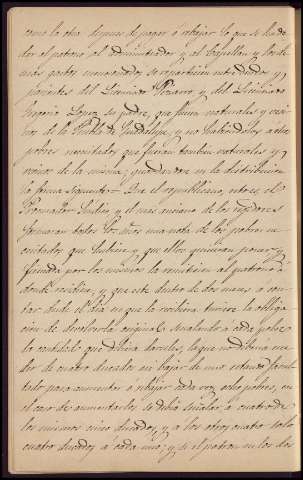 como la otra despues de pagar ó rebajar lo que se ha de
dar el patrono al administrador y al Capellan y los de
más gastos mencionados se repartiesen entre deudos y
parientes del Licenciado Pizarro y del Licenciado
Gregorio Lopez su padre, que fueran naturales y veci
nos de la Puebla de Guadalupe, y no habiendolos a otros
pobres necesitados que fueran tambien naturales y
vecinos de la misma; guardandose en la distribucion
la forma siguiente = Que el republicano, entonces, el
Procurador Sindico y el mas anciano de los regidores
formaran todos los años una nota de los pobres ne
cesitados que hubiera y que ellos quisieran poner y
firmada por los mismos la remitieran al patrono
donde residiera, y que este dentro de dos meses, á con
tar desde el dia en que la recibiera tuviere la obliga
cion de devolverla original, señalando a cada pobre
la cantidad que debiera darseles, la que no debia esce
der de cuatro ducados ni bajar de uno estando facul
tado para aumentar ó rebajar cada vez ocho pobres, en
el caso de aumentarlos se debia señalar, a cuatro de
los mismos cinco ducados, y a los otros cuatro solo
cuatro ducados á cada uno; y si el patrono en los dos